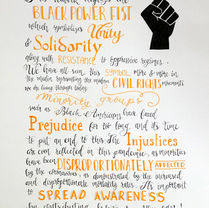 BLACK POWER FIST
which symbolizes Unity
& Solidarity
along with Resistance to oppressive regimes.
We have all seen this symbol more & more in
the modern CIVIL RIGHTS movements
we are living through today
Minority groups
such as Black Americans have faced
Prejudice for too long, and its time
to put an end to this. The Injustices
are even reflected in this pandemic, as minorities
have been DISPROPORTIONATELY AFFECTED
by the coronavirus, as demonstrated by the increased
and disproportionate mortality rates. Its important
to SPREAD AWARENESS